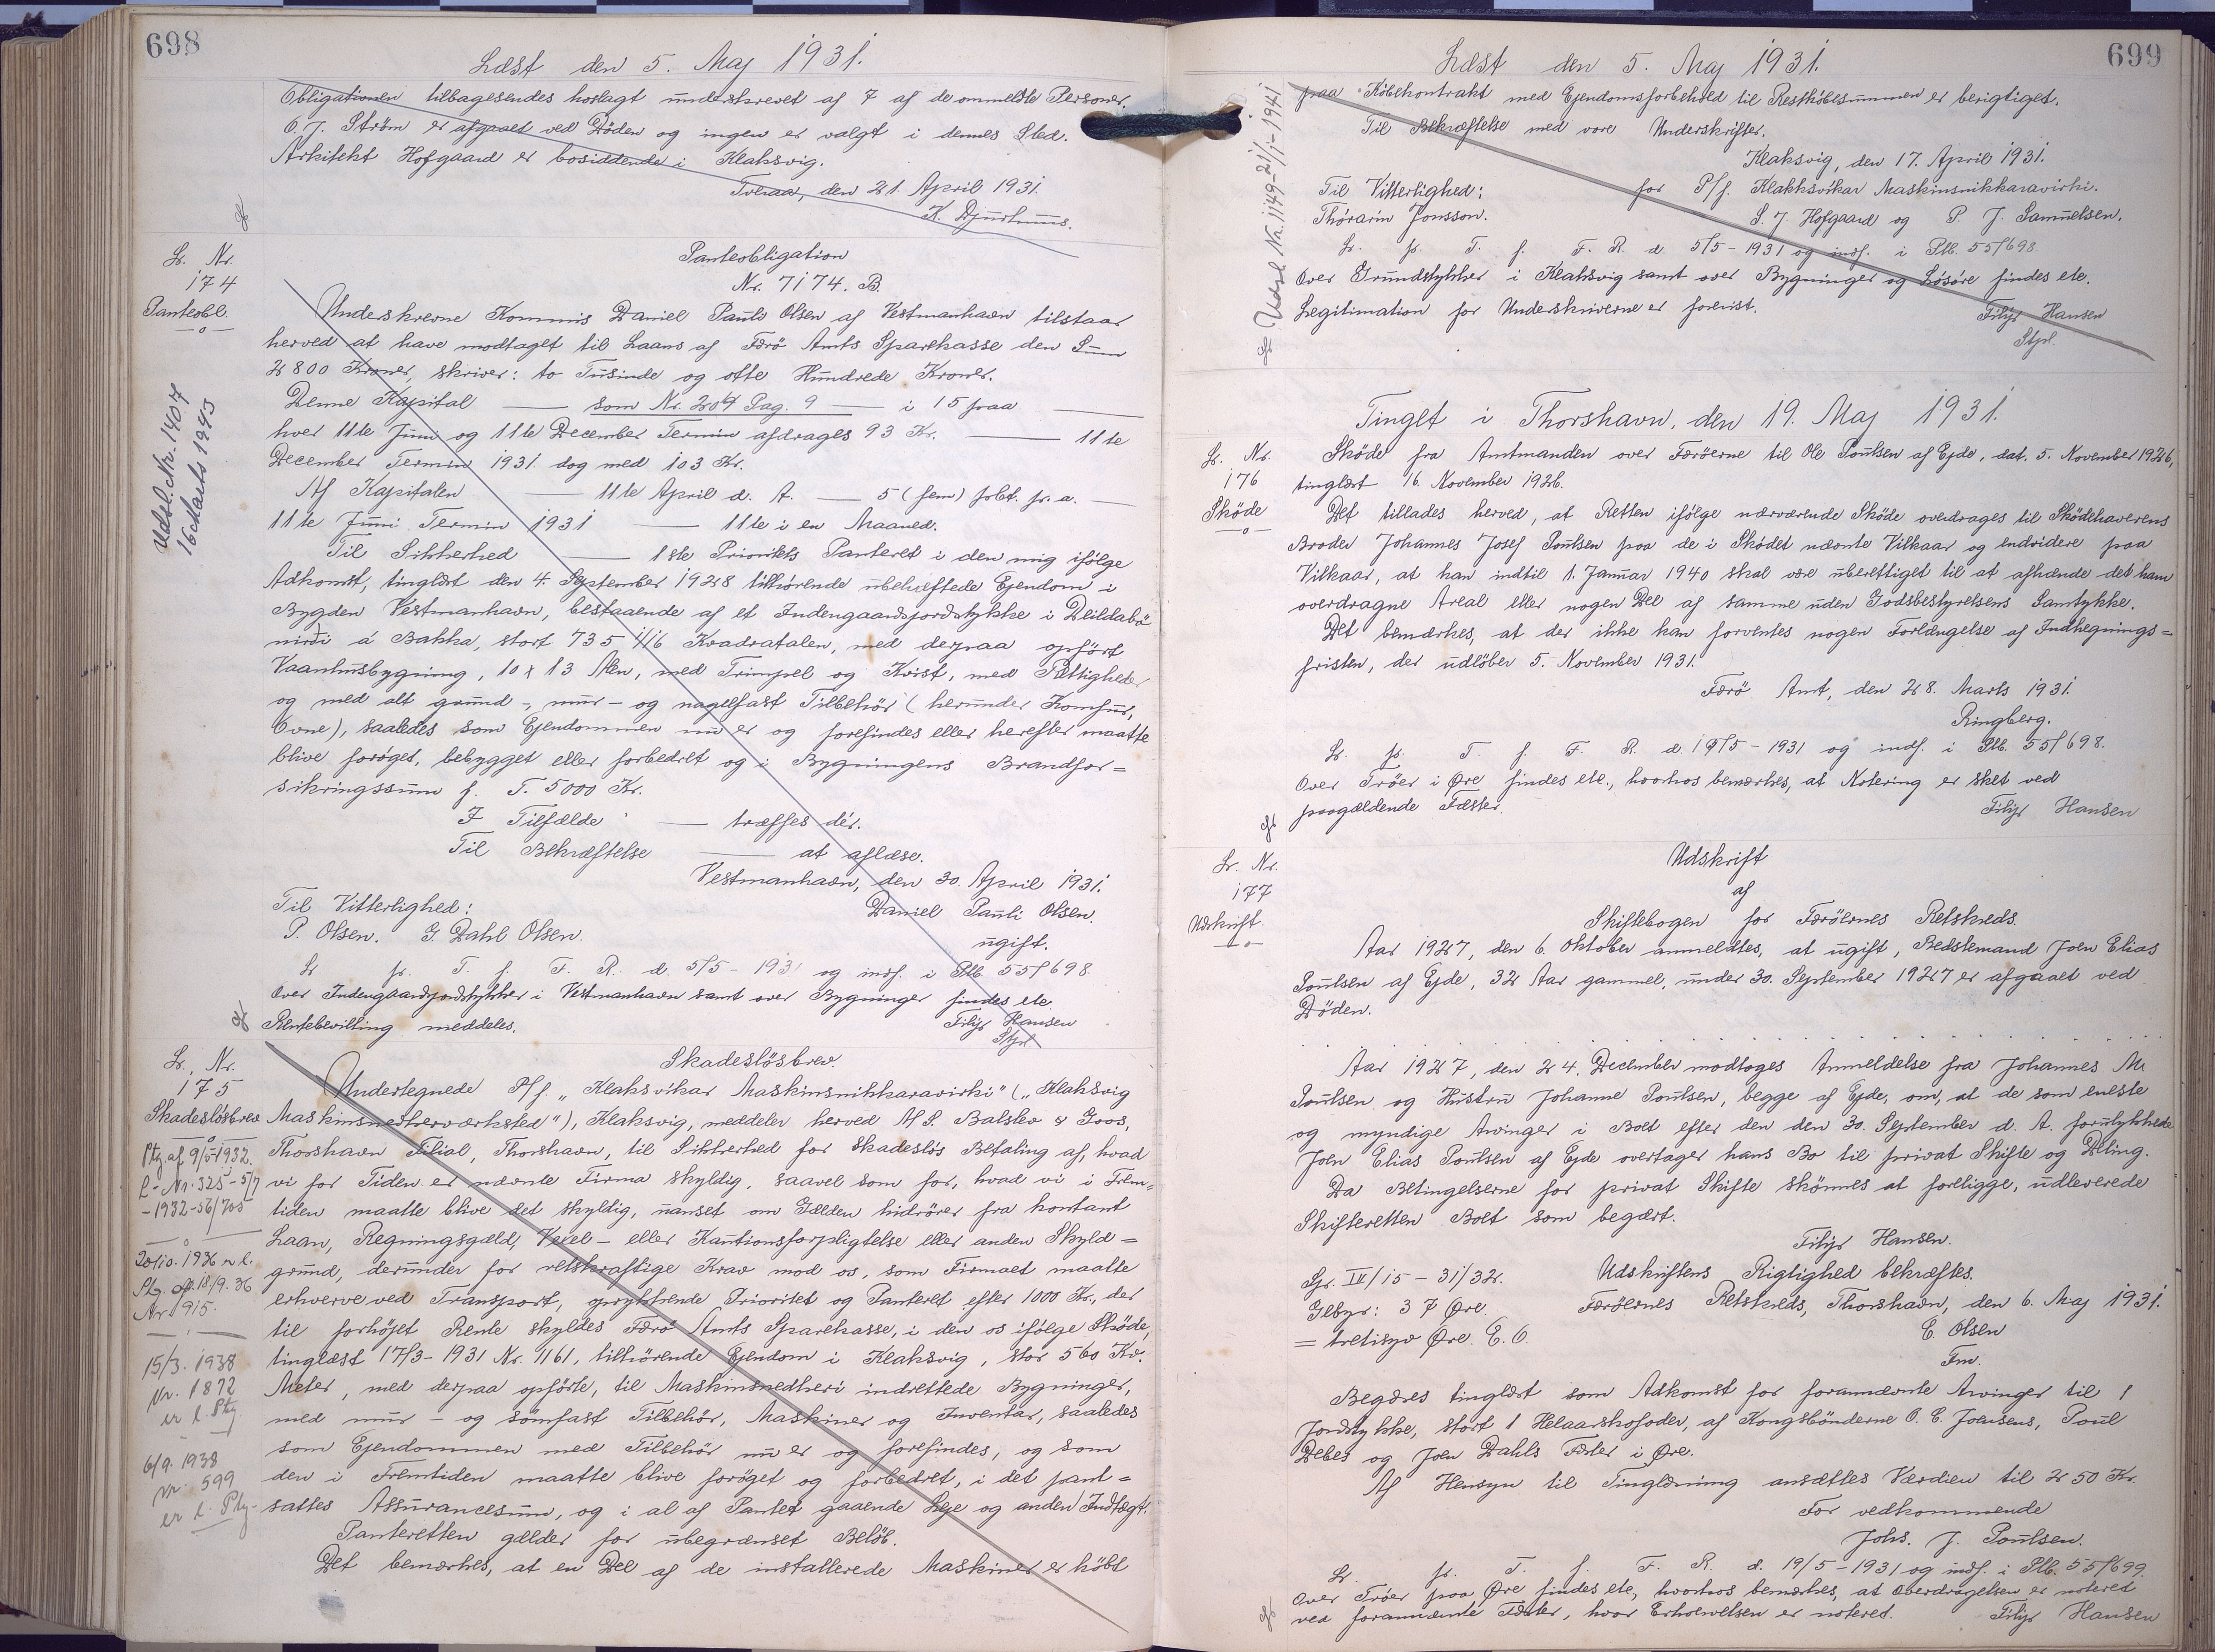 698
Læst den 5. Maj 1931.
Obligationen tilbagesendes hoslagt underskrevet af 7 af de ommeldte Personer.
O. J. Ström er afgaaet ved Döden og ingen er valgt i dennes Sted.
Arkitekt Hofgaard er bosiddende i Klaksvig.
Tveraa, den 21. April 1931.
K. Djurhuus.
Lb. Nr.
174
Panteobl.
Udsl. Nr. 1407
16 Marts 1943
Panteobligation
Nr. 7174. B.
Underskrevne Kommis Daniel Pauli Olsen af Vestmanhavn tilstaar
herved at have modtaget til Laans af Færö Amts Sparekasse den Sum
2800 Kroner, skriver: to Tusinde og otte Hundrede Kroner.
Denne Kapital — som Nr. 204 Pag. 9 — i 15 paa —
hver 11te Juni og 11te December Termin afdrages 93 Kr. — 11te
December Termin 1931 dog med 103 Kr.
Af Kapitalen — 11te April d. A. — 5 (fem) pCt. pr. a. —
11te Juni Termin 1931 — 11te i en Maaned.
Til Sikkerhed — 1ste Prioritets Panteret i den mig ifölge
Adkomst, tinglæst den 4. September 1928 tilhörende ubehæftede Ejendom i
Bygden Vestmanhavn, bestaaende af et Indengaardsjordstykke i Deildabö
nidri á Bakka, stort 735 1/16 Kvadratalen, med derpaa opfört
Vaanhusbygning, 10 x 13 Alen, med Trimpel og Kvist, med Rettigheder
og med alt grund-, mur- og nagelfast Tilbehör (herunder Komfur,
Ovne), saaledes som Ejendommen nu er og forefindes eller herefter maatte
blive foröget, bebygget eller forbedret og i Bygningens Brandfor=
sikringssum f. T. 5000 Kr.
I Tilfælde — træffes dér.
Til Bekræftelse — at aflæse.
Vestmanhavn, den 30. April 1931.
Til Vitterlighed: Daniel Pauli Olsen.
P. Olsen. G. Dahl Olsen. ugift.
Lb. pr. T. f. F. R. d. 5/5 - 1931 og indf. i Ptb. 55/698.
Over Indengaardsjordstykker i Vestmanhavn samt over Bygninger findes etc.
Rentebevilling meddeles. Filip Hansen
Stpl.
Lb. Nr.
175
Skadeslösbrev
Ptg. af 9/5-1932.
l. Nr. 325 - 5/7
- 1932 - 56/705
20/10. 1936 n l.
Ptg. af 18/9. 36
Nr. 915.
15/3. 1938
Nr. 1872
er l. Ptg.
6/9. 1938
Nr. 599
er l. Ptg.
Skadeslösbrev.
Undertegnede P/f. „Klaksvíkar Maskinsmikkaravirki" („Klaksvig
Maskinsmedeværksted"), Klaksvig, meddeler herved A/S. Balslev & Goos,
Thorshavn Filial, Thorshavn, til Sikkerhed for skadeslös Betaling af, hvad
vi for Tiden er nævnte Firma skyldig, saavel som for, hvad vi i Frem-
tiden maatte blive det skyldig, uanset om Gælden hidrörer fra kontant
Laan, Regningsgæld, Vexel- eller Kautionsforpligtelse eller anden Skyld=
grund, derunder for retskraftige Krav mod os, som Firmaet maatte
erhverve ved Transport, oprykkende Prioritet og Panteret efter 1000 Kr., der
til forhöjet Rente skyldes Færö Amts Sparekasse, i den os ifölge Sköde,
tinglæst 17/3-1931 Nr. 1161, tilhörende Ejendom i Klaksvig, stor 560 Kv.
Meter, med derpaa opförte, til Maskinsmedheri indrettede Bygninger,
med mur- og sömfast Tilbehör, Maskiner og Inventar, saaledes
som Ejendommen med Tilbehör nu er og forefindes, og som
den i Fremtiden maatte blive foröget og forbedret, i det pant=
sattes Assurancesum, og i al af Pantet gaaende Leje og anden Indtægt.
Panteretten gælder for ubegrænset Belöb.
Det bemærkes, at en Del af de installerede Maskiner er köbt
699
Læst den 5. Maj 1931.
paa Köbekontrakt med Ejendomsforbehold til Restköbesummen er berigtiget.
Til Bekræftelse med vore Underskrifter.
Klaksvig, den 17. April 1931.
Til Vitterlighed: for P/f. Klakksvíkar Maskinsmikkaravirki.
Thórarin Jónsson. S. J. Hofgaard og P. J. Samuelsen.
Lb. pr. T. f. F. R. d. 5/5 - 1931 og indf. i Ptb. 55/698.
Over Grundstykker i Klaksvig samt over Bygninger og Lösöre findes etc.
Legitimation for Underskriverne er forevist. Filip Hansen
Stpl.
Udsl. Nr. 1149 - 21/1 - 1941
Tinget i Thorshavn, den 19. Maj 1931.
Lb. Nr.
176
Sköde
Sköde fra Amtmanden over Færöerne til Ole Poulsen af Ejde, dat. 5. November 1926,
tinglæst 16. November 1926.
Det tillades herved, at Retten ifölge nærværende Sköde overdrages til Sködehaverens
Broder Johannes Josef Poulsen paa de i Sködet nævnte Vilkaar og endvidere paa
Vilkaar, at han indtil 1. Januar 1940 skal være uberettiget til at afhænde det ham
overdragne Areal eller nogen Del af samme uden Godsbestyrelsens Samtykke.
Det bemærkes, at der ikke kan forventes nogen Forlængelse af Indhegnings=
fristen, der udlöber 5. November 1931.
Færö Amt, den 28. Marts 1931.
Ringberg.
Lb. pr. T. f. F. R. d. 19/5 - 1931 og indf. i Ptb. 55/698.
Over Tröer i Øre findes etc., hvorhos bemærkes, at Notering er sket ved
paagældende Fæster. Filip Hansen
Lb. Nr.
177
Udskrift.
Udskrift
af
Skiftebogen for Færöernes Retskreds.
Aar 1927, den 6. Oktober anmeldtes, at ugift, Bedstemand Joen Elias
Poulsen af Ejde, 32 Aar gammel, under 30. September 1927 er afgaaet ved
Döden.
Aar 1927, den 24. December modtoges Anmeldelse fra Johannes M.
Poulsen og Hustru Johanne Poulsen, begge af Ejde, om, at de som eneste
og myndige Arvinger i Boet efter den den 30. September d. A. forulykkede
Joen Elias Poulsen af Ejde overtager hans Bo til privat Skifte og Deling.
Da Betingelserne for privat Skifte skönnes at foreligge, udleverede
Skifteretten Boet som begært.
Filip Hansen.
Sp. IV/15 - 31/32. Udskriftens Rigtighed bekræftes.
Gebyr: 37 Øre. Færöernes Retskreds, Thorshavn, den 6. Maj 1931.
= tretisyv Øre. E. O. E. Olsen
Fm.
Begæres tinglæst som Adkomst for forannævnte Arvinger til 1
Jordstykke, stort 1 Helaarskofoder, af Kongsbönderne O. C. Joensens, Poul
Debes og Joen Dahls Fæster i Øre.
Af Hensyn til Tinglæsning ansættes Værdien til 250 Kr.
For vedkommende
Johs. J. Poulsen.
Lb. pr. T. f. F. R. d. 19/5 - 1931 og indf. i Ptb. 55/699.
Over Tröer paa Øre findes etc, hvorhos bemærkes, at Overdragelsen er noteret
ved forannævnte Fæster, hvor Erhvervelsen er noteret. Filip Hansen